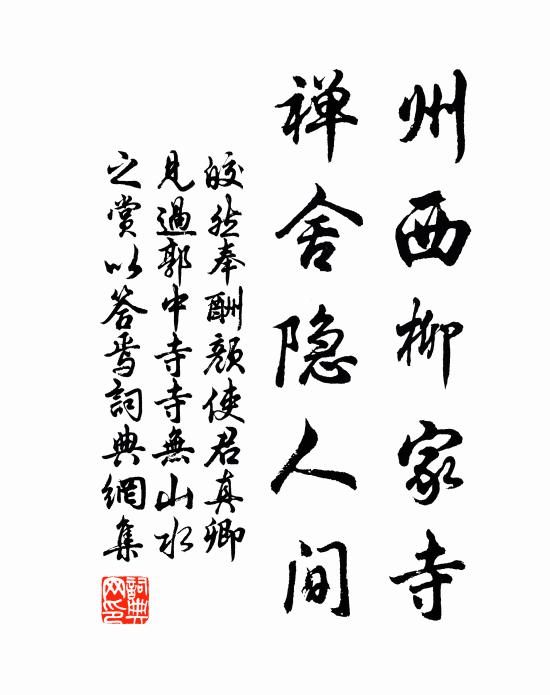 州西柳家寺
禅舍隐人间
皎然奉酬颜使君真卿
见過郭中寺寺無山水
之賞以答焉詞典網集
詞典网印